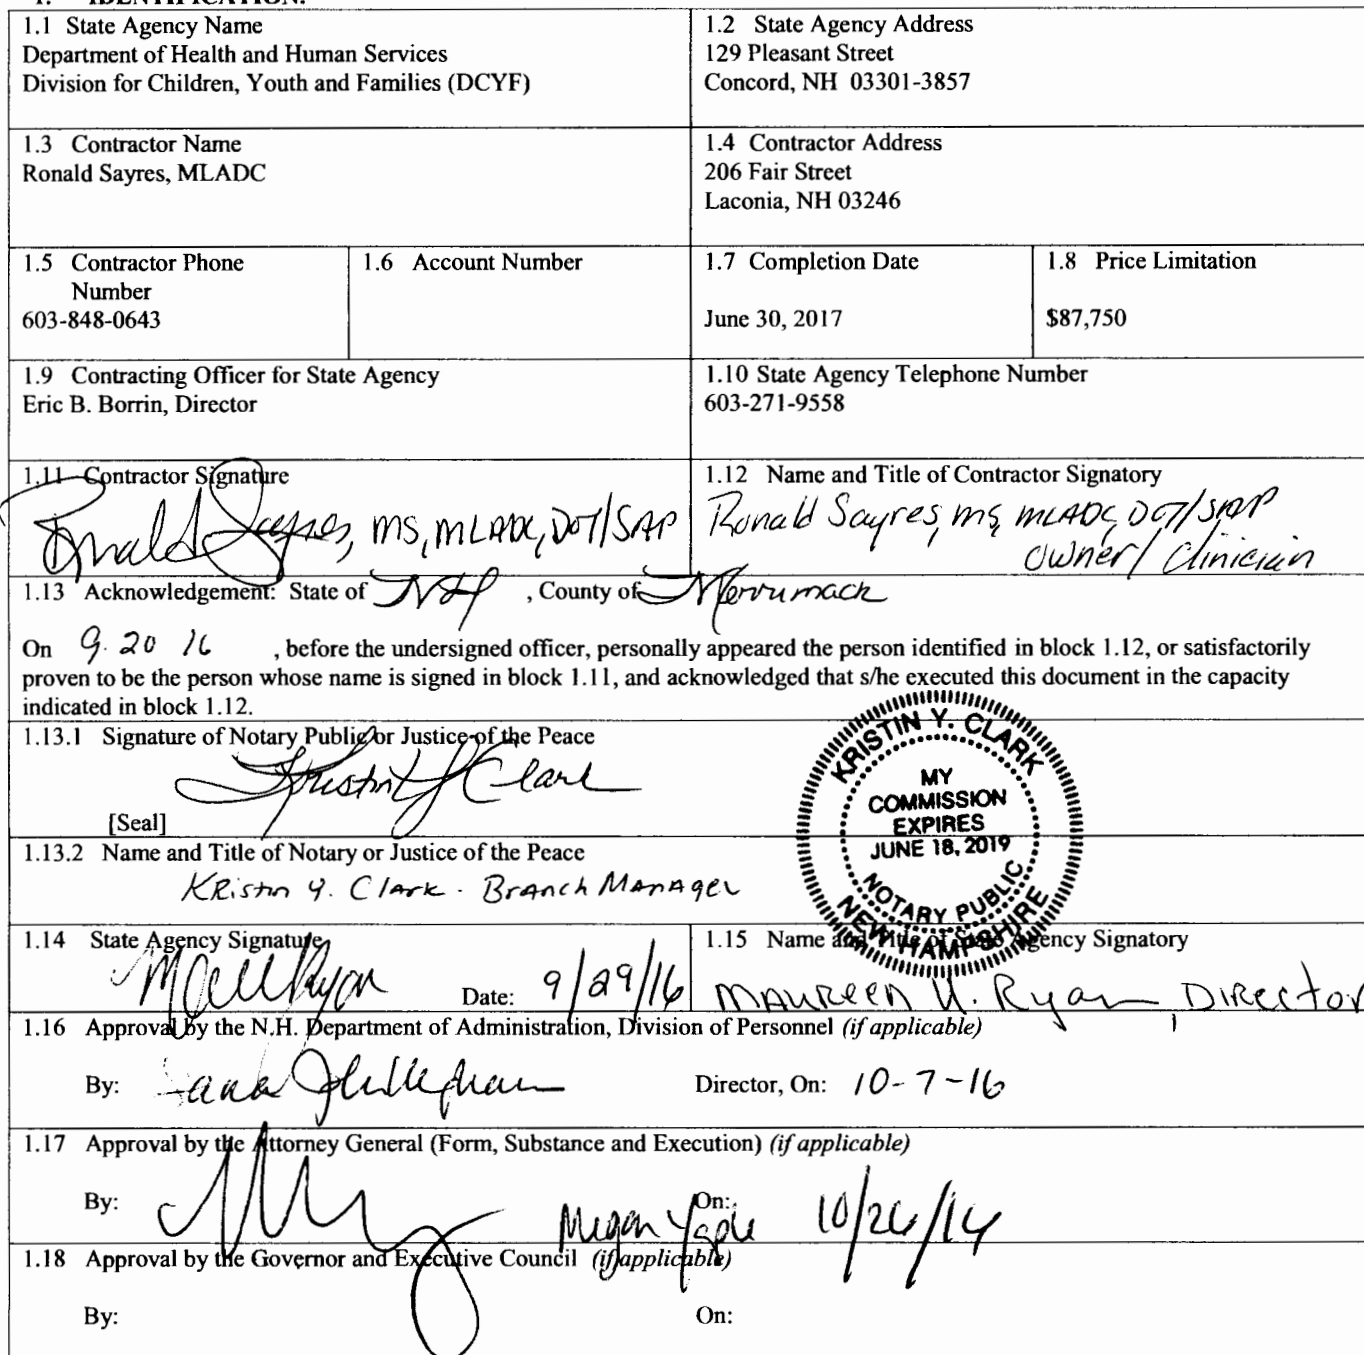 1. IDENTIFICATION.
1.1 State Agency Name
Department of Health and Human Services
Division for Children, Youth and Families (DCYF)
1.2 State Agency Address
129 Pleasant Street
Concord, NH 03301-3857
1.3 Contractor Name
Ronald Sayres, MLADC
1.4 Contractor Address
206 Fair Street
Laconia, NH 03246
1.5 Contractor Phone
Number
603-848-0643
1.6 Account Number
1.7 Completion Date
June 30, 2017
1.8 Price Limitation
$87,750
1.9 Contracting Officer for State Agency
Eric B. Borrin, Director
1.10 State Agency Telephone Number
603-271-9558
1.11 Contractor Signature
Ronald Sayres, MS, MLADC, DOT/SAP
1.12 Name and Title of Contractor Signatory
Ronald Sayres, MS, MLADC, DOT/SAP
owner/Clinician
1.13 Acknowledgement: State of NH , County of Merrimack
On 9.20 16 , before the undersigned officer, personally appeared the person identified in block 1.12, or satisfactorily
proven to be the person whose name is signed in block 1.11, and acknowledged that s/he executed this document in the capacity
indicated in block 1.12.
1.13.1 Signature of Notary Public or Justice of the Peace
Kristin Y Clark
[Seal]
KRISTIN Y. CLARK
MY
COMMISSION
EXPIRES
JUNE 18, 2019
NOTARY PUBLIC
NEW HAMPSHIRE
1.13.2 Name and Title of Notary or Justice of the Peace
Kristin Y. Clark - Branch Manager
1.14 State Agency Signature
Date: 9/29/16
1.15 Name and Title of State Agency Signatory
Maureen U. Ryan Director
1.16 Approval by the N.H. Department of Administration, Division of Personnel (if applicable)
By: Director, On: 10-7-16
1.17 Approval by the Attorney General (Form, Substance and Execution) (if applicable)
By: Megan Yaple On: 10/26/16
1.18 Approval by the Governor and Executive Council (if applicable)
By: On: